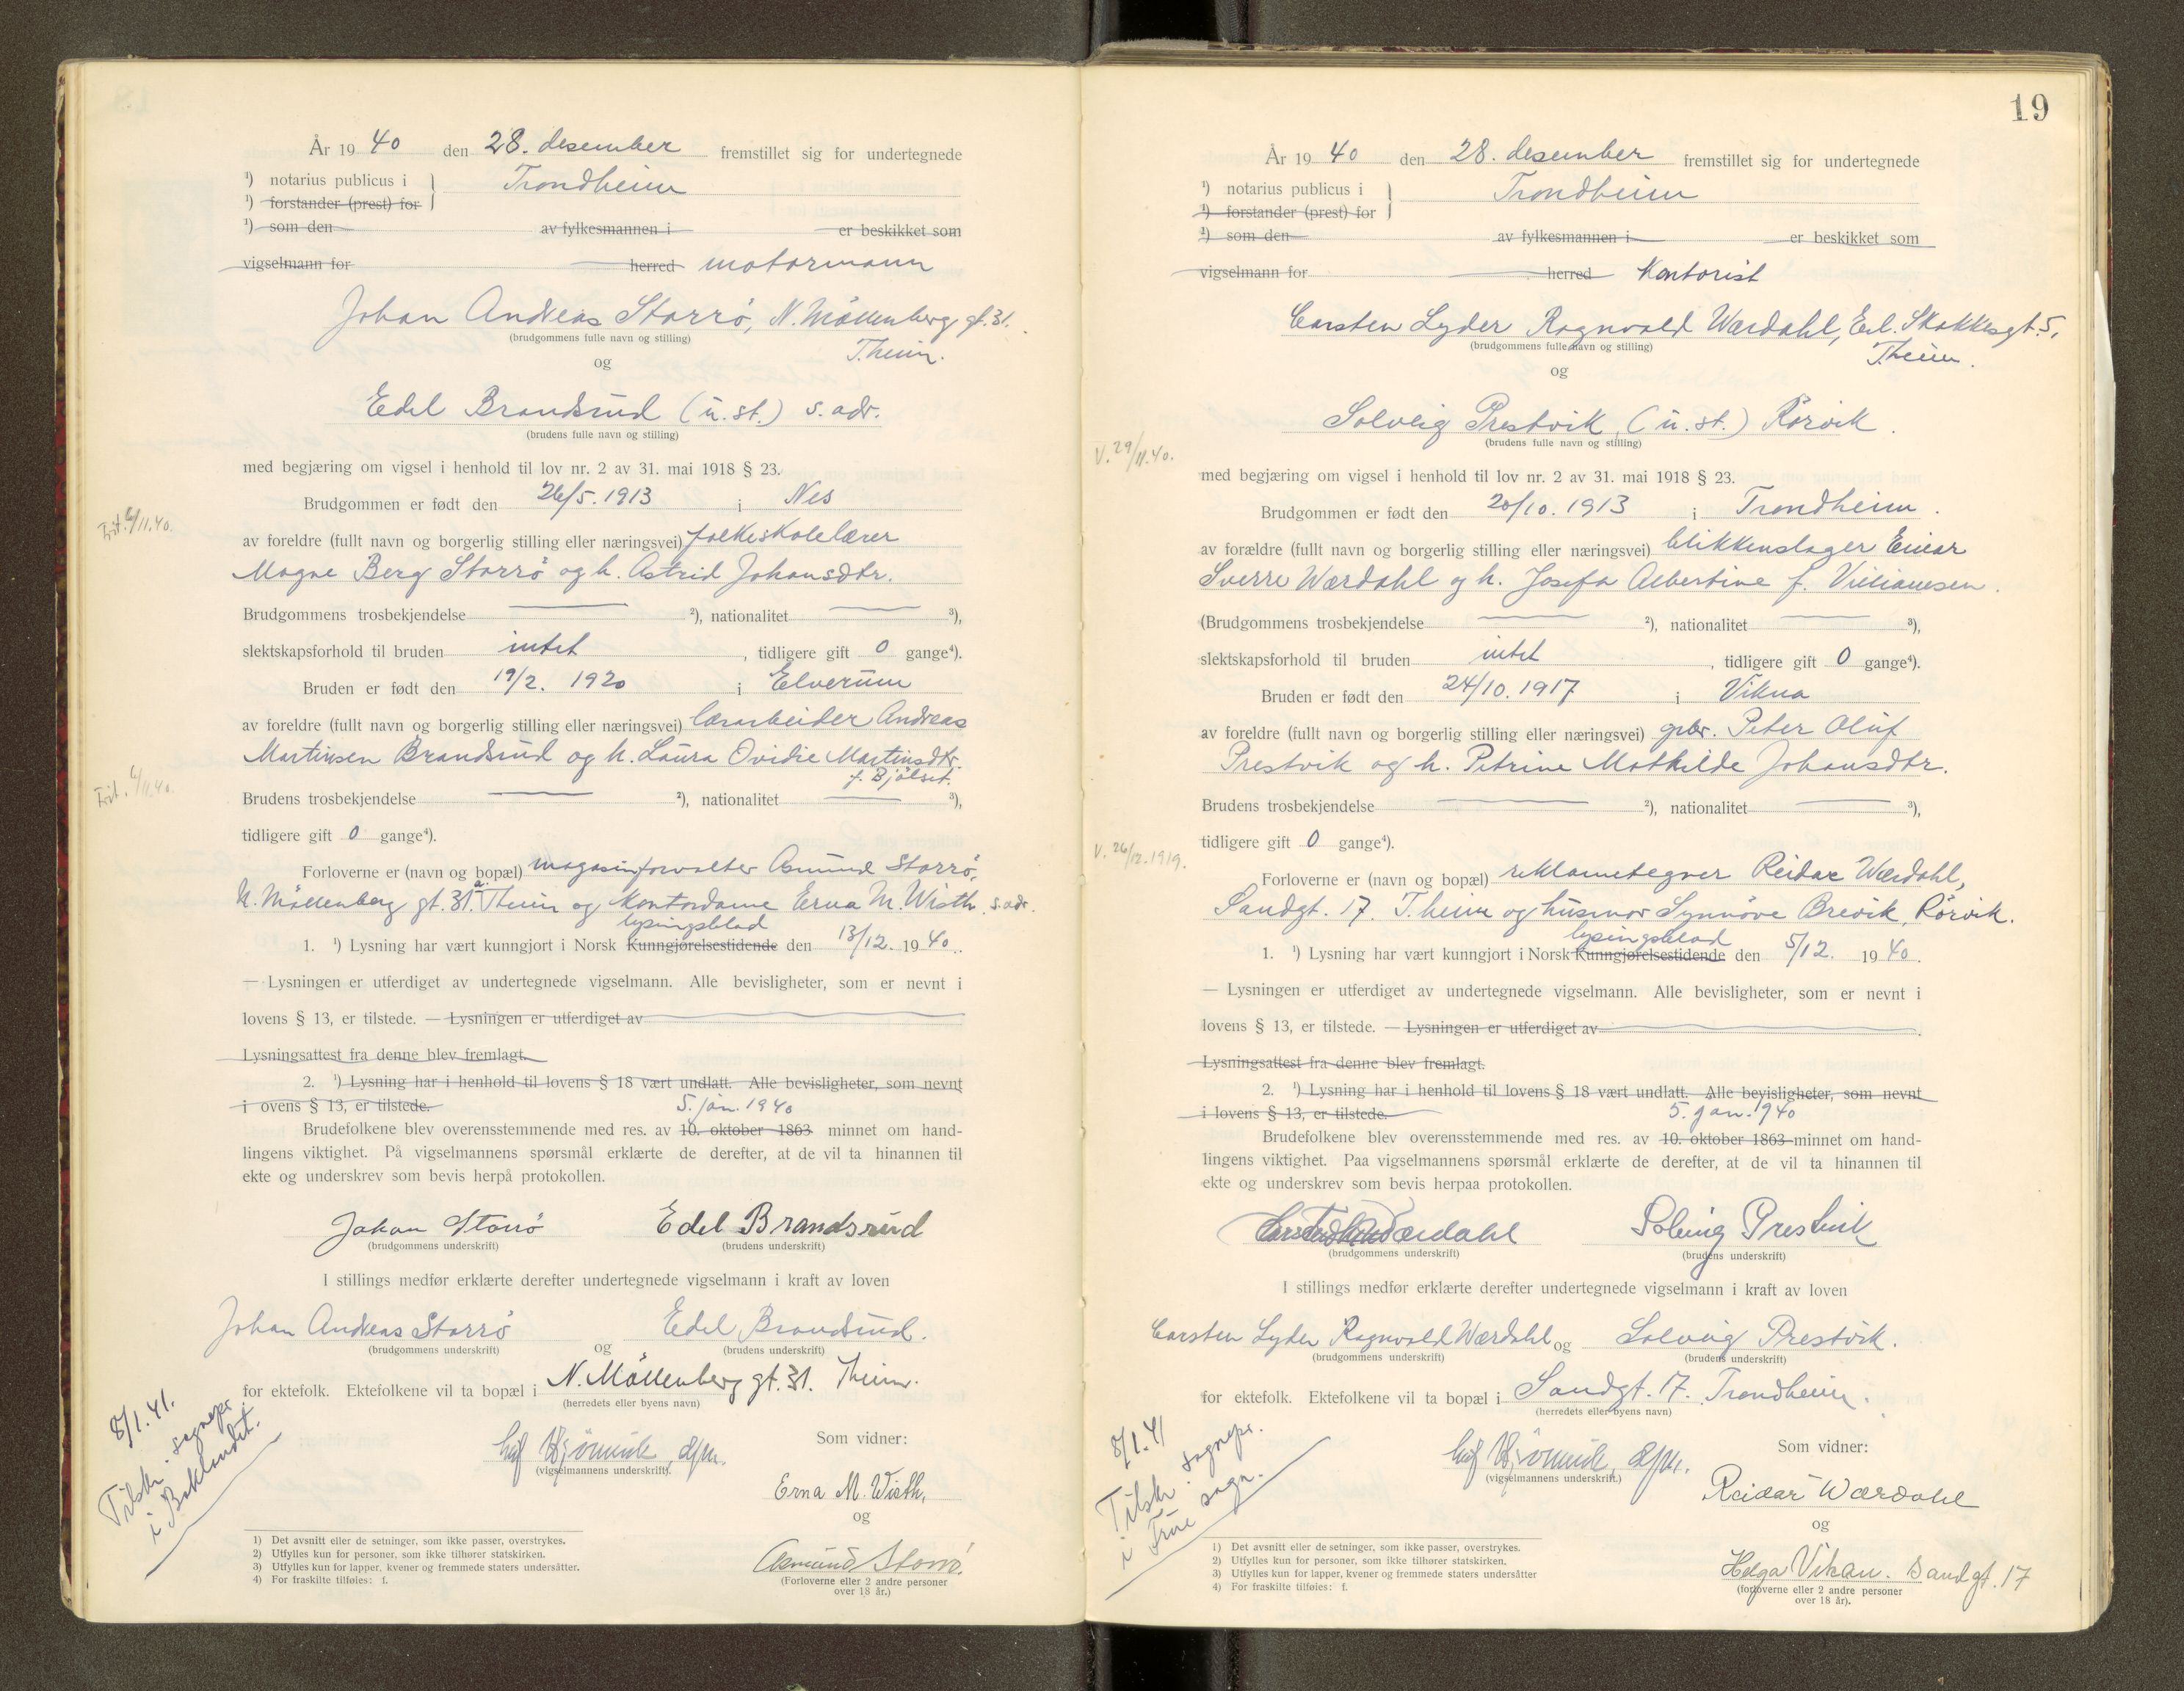 År 19 40 den 28. desember fremstillet sig for undertegnede
¹) notarius publicus i } Trondheim
¹) forstander (prest) for
¹) som den av fylkesmannen i er beskikket som
vigselmann for herred motormann
Johan Andreas Storrö, N. Möllenberg gt. 31.
(brudgommens fulle navn og stilling) T.heim.
og
Edel Brandsrud (u. st.) s. adr.
(brudens fulle navn og stilling)
med begjæring om vigsel i henhold til lov nr. 2 av 31. mai 1918 § 23.
Brudgommen er født den 26/5. 1913 i Nes
Frit. 6/11.40.
av foreldre (fullt navn og borgerlig stilling eller næringsvei) folkeskolelærer
Magne Berg Storrö og h. Astrid Johansdtr.
Brudgommens trosbekjendelse ²), nationalitet ³),
slektskapsforhold til bruden intet, tidligere gift 0 gange⁴).
Bruden er født den 19/2. 1920 i Elverum
av foreldre (fullt navn og borgerlig stilling eller næringsvei) lærarbeider Andreas
Martinsen Brandsrud og h. Laura Ovidie Martinsdtr.
f. Bjölset.
Frit. 6/11.40.
Brudens trosbekjendelse ²), nationalitet ³),
tidligere gift 0 gange⁴).
Forloverne er (navn og bopæl) magasinforvalter Asmund Storrö,
N. Möllenberg gt. 31.a T.heim og kontordame Erna M. Wisth, s. adr.
lysingsblad
1. ¹) Lysning har vært kunngjort i Norsk Kunngjørelsestidende den 13/12. 19 40.
— Lysningen er utferdiget av undertegnede vigselmann. Alle bevisligheter, som er nevnt i
lovens § 13, er tilstede. — Lysningen er utferdiget av
Lysningsattest fra denne blev fremlagt.
2. ¹) Lysning har i henhold til lovens § 18 vært undlatt. Alle bevisligheter, som nevnt
i ovens § 13, er tilstede. 5. jan. 1940
Brudefolkene blev overensstemmende med res. av 10. oktober 1863 minnet om hand-
lingens viktighet. På vigselmannens spørsmål erklærte de derefter, at de vil ta hinannen til
ekte og underskrev som bevis herpå protokollen.
Johan Storrö Edel Brandsrud
(brudgommens underskrift) (brudens underskrift)
I stillings medfør erklærte derefter undertegnede vigselmann i kraft av loven
Johan Andreas Storrö og Edel Brandsrud.
(brudgommens underskrift) (brudens underskrift)
for ektefolk. Ektefolkene vil ta bopæl i N. Möllenberg gt. 31. T.heim.
(herredets eller byens navn)
8/1.41.
Tilskr. sognepr.
i Baklandet.
Som vidner:
(vigselmannens underskrift).
Erna M. Wisth,
og
Asmund Storrö.
(Forloverne eller 2 andre personer
over 18 år.)
1) Det avsnitt eller de setninger, som ikke passer, overstrykes.
2) Utfylles kun for personer, som ikke tilhører statskirken.
3) Utfylles kun for lapper, kvener og fremmede staters undersåtter.
4) For fraskilte tilføies: f.
19
År 19 40 den 28. desember fremstillet sig for undertegnede
¹) notarius publicus i } Trondheim
¹) forstander (prest) for
²) som den av fylkesmannen i er beskikket som
vigselmann for herred Kontorist
Carsten Lyder Ragnvald Wærdahl, Erl. Skakkesgt. 5,
(brudgommens fulle navn og stilling) T.heim.
og
Solveig Prestvik, (u. st.) Rörvik.
(brudens fulle navn og stilling)
V. 29/11.40.
med begjæring om vigsel i henhold til lov nr. 2 av 31. mai 1918 § 23.
Brudgommen er født den 20/10. 1913 i Trondheim.
av forældre (fullt navn og borgerlig stilling eller næringsvei) blikkenslager Einar
Sverre Wærdahl og h. Josefa Albertine f. Villiamsen.
(Brudgommens trosbekjendelse ²), nationalitet ³),
slektskapsforhold til bruden intet, tidligere gift 0 gange⁴).
Bruden er født den 24/10. 1917 i Vikna
av foreldre (fullt navn og borgerlig stilling eller næringsvei) gbr. Peter Oluf
Prestvik og h. Petrine Mathilde Johansdtr.
Brudens trosbekjendelse ²), nationalitet ³),
tidligere gift 0 gange⁴).
V. 26/12.1919.
Forloverne er (navn og bopæl) reklametegner Reidar Wærdahl,
Sandgt. 17. T.heim og husmor Synnöve Brevik, Rörvik.
lysingsblad
1. ¹) Lysning har vært kunngjort i Norsk Kunngjørelsestidende den 5/12. 19 40.
— Lysningen er utferdiget av undertegnede vigselmann. Alle bevisligheter, som er nevnt i
lovens § 13, er tilstede. — Lysningen er utferdiget av
Lysningsattest fra denne blev fremlagt.
2. ¹) Lysning har i henhold til lovens § 18 vært undlatt. Alle bevisligheter, som nevnt
i lovens § 13, er tilstede. 5. jan. 1940
Brudefolkene blev overensstemmende med res. av 10. oktober 1863 minnet om hand-
lingens viktighet. Paa vigselmannens spørsmål erklærte de derefter, at de vil ta hinannen til
ekte og underskrev som bevis herpaa protokollen.
Wærdahl Solveig Prestvik
(brudgommens underskrift) (brudens underskrift)
I stillings medfør erklærte derefter undertegnede vigselmann i kraft av loven
Carsten Lyder Ragnvald Wærdahl og Solveig Prestvik.
(brudgommens underskrift) (brudens underskrift)
for ektefolk. Ektefolkene vil ta bopæl i Sandgt. 17. Trondheim.
(herredets eller byens navn)
8/1.41
Tilskr. sognepr.
i Frue sogn.
Som vidner:
(vigselmannens underskrift.)
Reidar Wærdahl
og
Helga Vikan. Sandgt. 17
(forloverne eller 2 andre personer
over 18 år).
1) Det avsnitt eller de setninger, som ikke passer, overstrykes.
2) Utfylles kun for personer, som ikke tilhører statskirken.
3) Utfylles kun for lapper, kvener og fremmede staters undersåtter
4) For fraskilte tilføies: f.